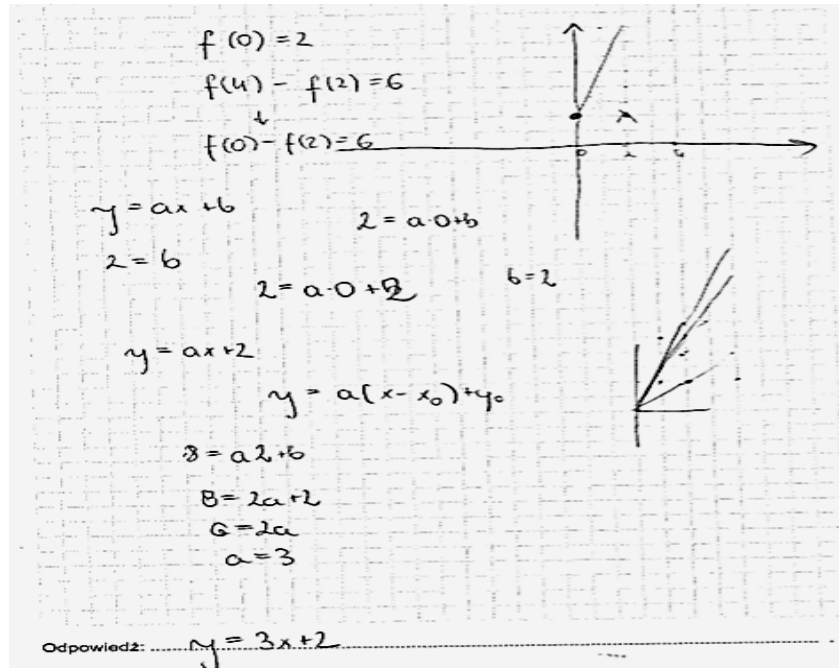 f(0) = 2
f(4) - f(2) = 6
↓
f(0) - f(2) = 6
0 2 4
y = ax + b
2 = a·0+b
2 = b
2 = a·0 + 2
b = 2
y = ax + 2
y = a(x - x₀) + y₀
8 = a2 + b
8 = 2a + 2
6 = 2a
a = 3
Odpowiedź: y = 3x + 2